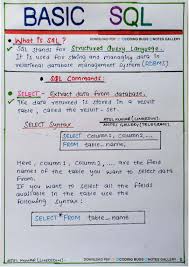 BASIC SQL
DOWNLOAD PDF : CODING BUGS NOTES GALLERY
What is SQL ?
SQL stands for Structured Query Language.
It is used for storing and managing data in
relational database management system (RDBMS).
SQL Commands:
SELECT - Extract data from database.
The data returned is stored in a result
table, called the result-set.
ATUL KUMAR (LINKEDIN).
NOTES GALLERY (TELEGRAM).
SELECT Syntax
SELECT column1, column2, ...
FROM table_name;
Here, column1, column2, ... are the field
names of the table you want to select data
from.
If you want to select all the fields
available in the table use the
following syntax:
SELECT * FROM table_name;
ATUL KUMAR (LINKEDIN).
DOWNLOAD PDF : CODING BUGS NOTES GALLERY